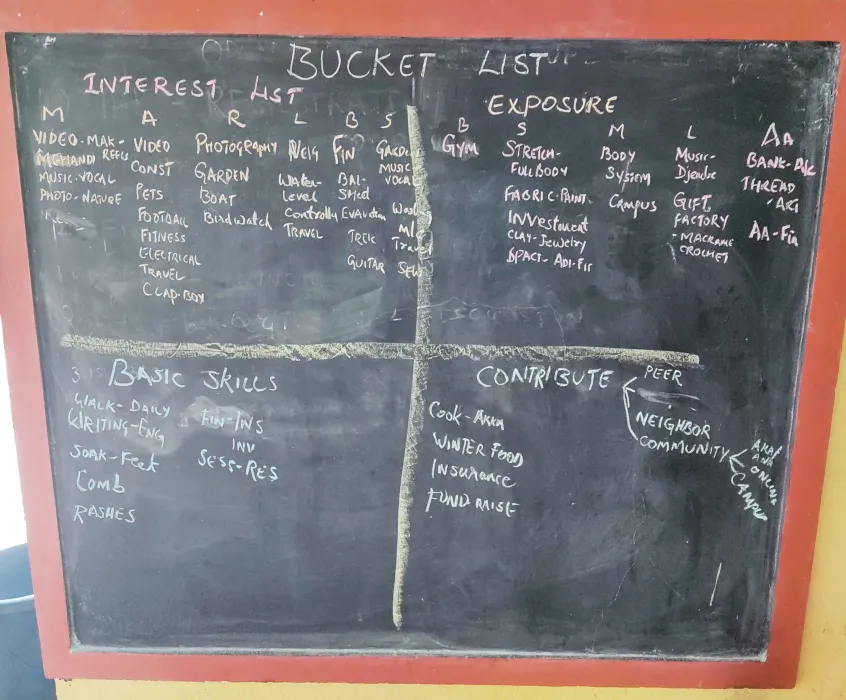 BUCKET LIST
INTEREST LIST
M
VIDEO-MAK-
MEHANDI REELS
MUSIC-VOCAL
PHOTO-NATURE
A
VIDEO
CONST
PETS
FOOTBALL
FITINESS
ELECTRICAL
TRAVEL
CLAP-BOY
R
PHOTOGRAPHY
GARDEN
BOAT
Bird watch
L
NEIG
Water-
Level
Controlly
TRAVEL
B
FIN
BAL-
SHed
EVAuation
TREK
GUITAR
S
GARDEN
MUSIC
VOCAL
Travel
SEW
EXPOSURE
B
GYM
S
STRETCH-
FULL BODY
FABRIC-PAINT
INVestment
CLAY-Jewelry
M
BODY
SYSTEM
CAMPUS
L
MUSIC-
Djembe
GIFT
FACTORY
-MACRAME
CROCHET
AA
BANK-A/c
THREAD
-ART
AA-Fin
BASIC SKILLS
WALK-DAILY
WRITING-ENG
SOAK-Feet
Comb
RASHES
FIN-INS
INV
SESS-RES
CONTRIBUTE
PEER
NEIGHBOR
COMMUNITY
ONLINE
CAMPUS
COOK-AKKA
WINTER FOOD
INSURANCE
FUND RAISE